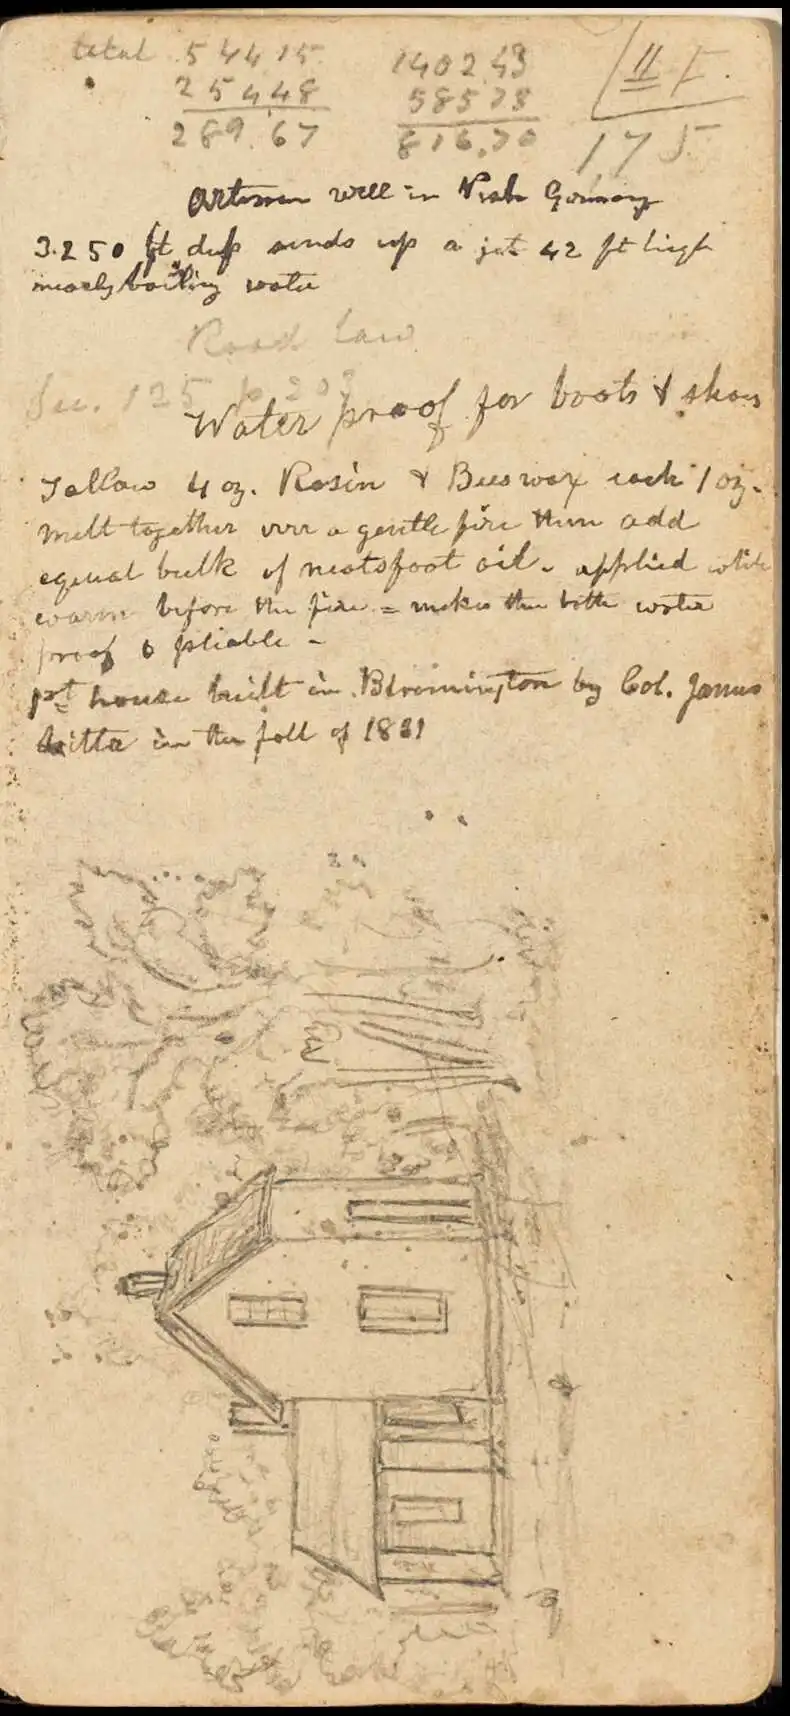 total 54415 140243 II F.
25448 58573
289.67 816.70 175
Artesian well in
3.250 ft deep sends up a jet 42 ft high
nearly boiling water
Road law
Sec. 125 p 203
Water proof for boots & shoes
Tallow 4 oz. Rosin & Beeswax each 1 oz.
melt together over a gentle fire then add
equal bulk of neatsfoot oil. applied while
warm before the fire = makes the water
proof & pliable -
1st house built in Bloomington by Col. James
in the fall of 1831